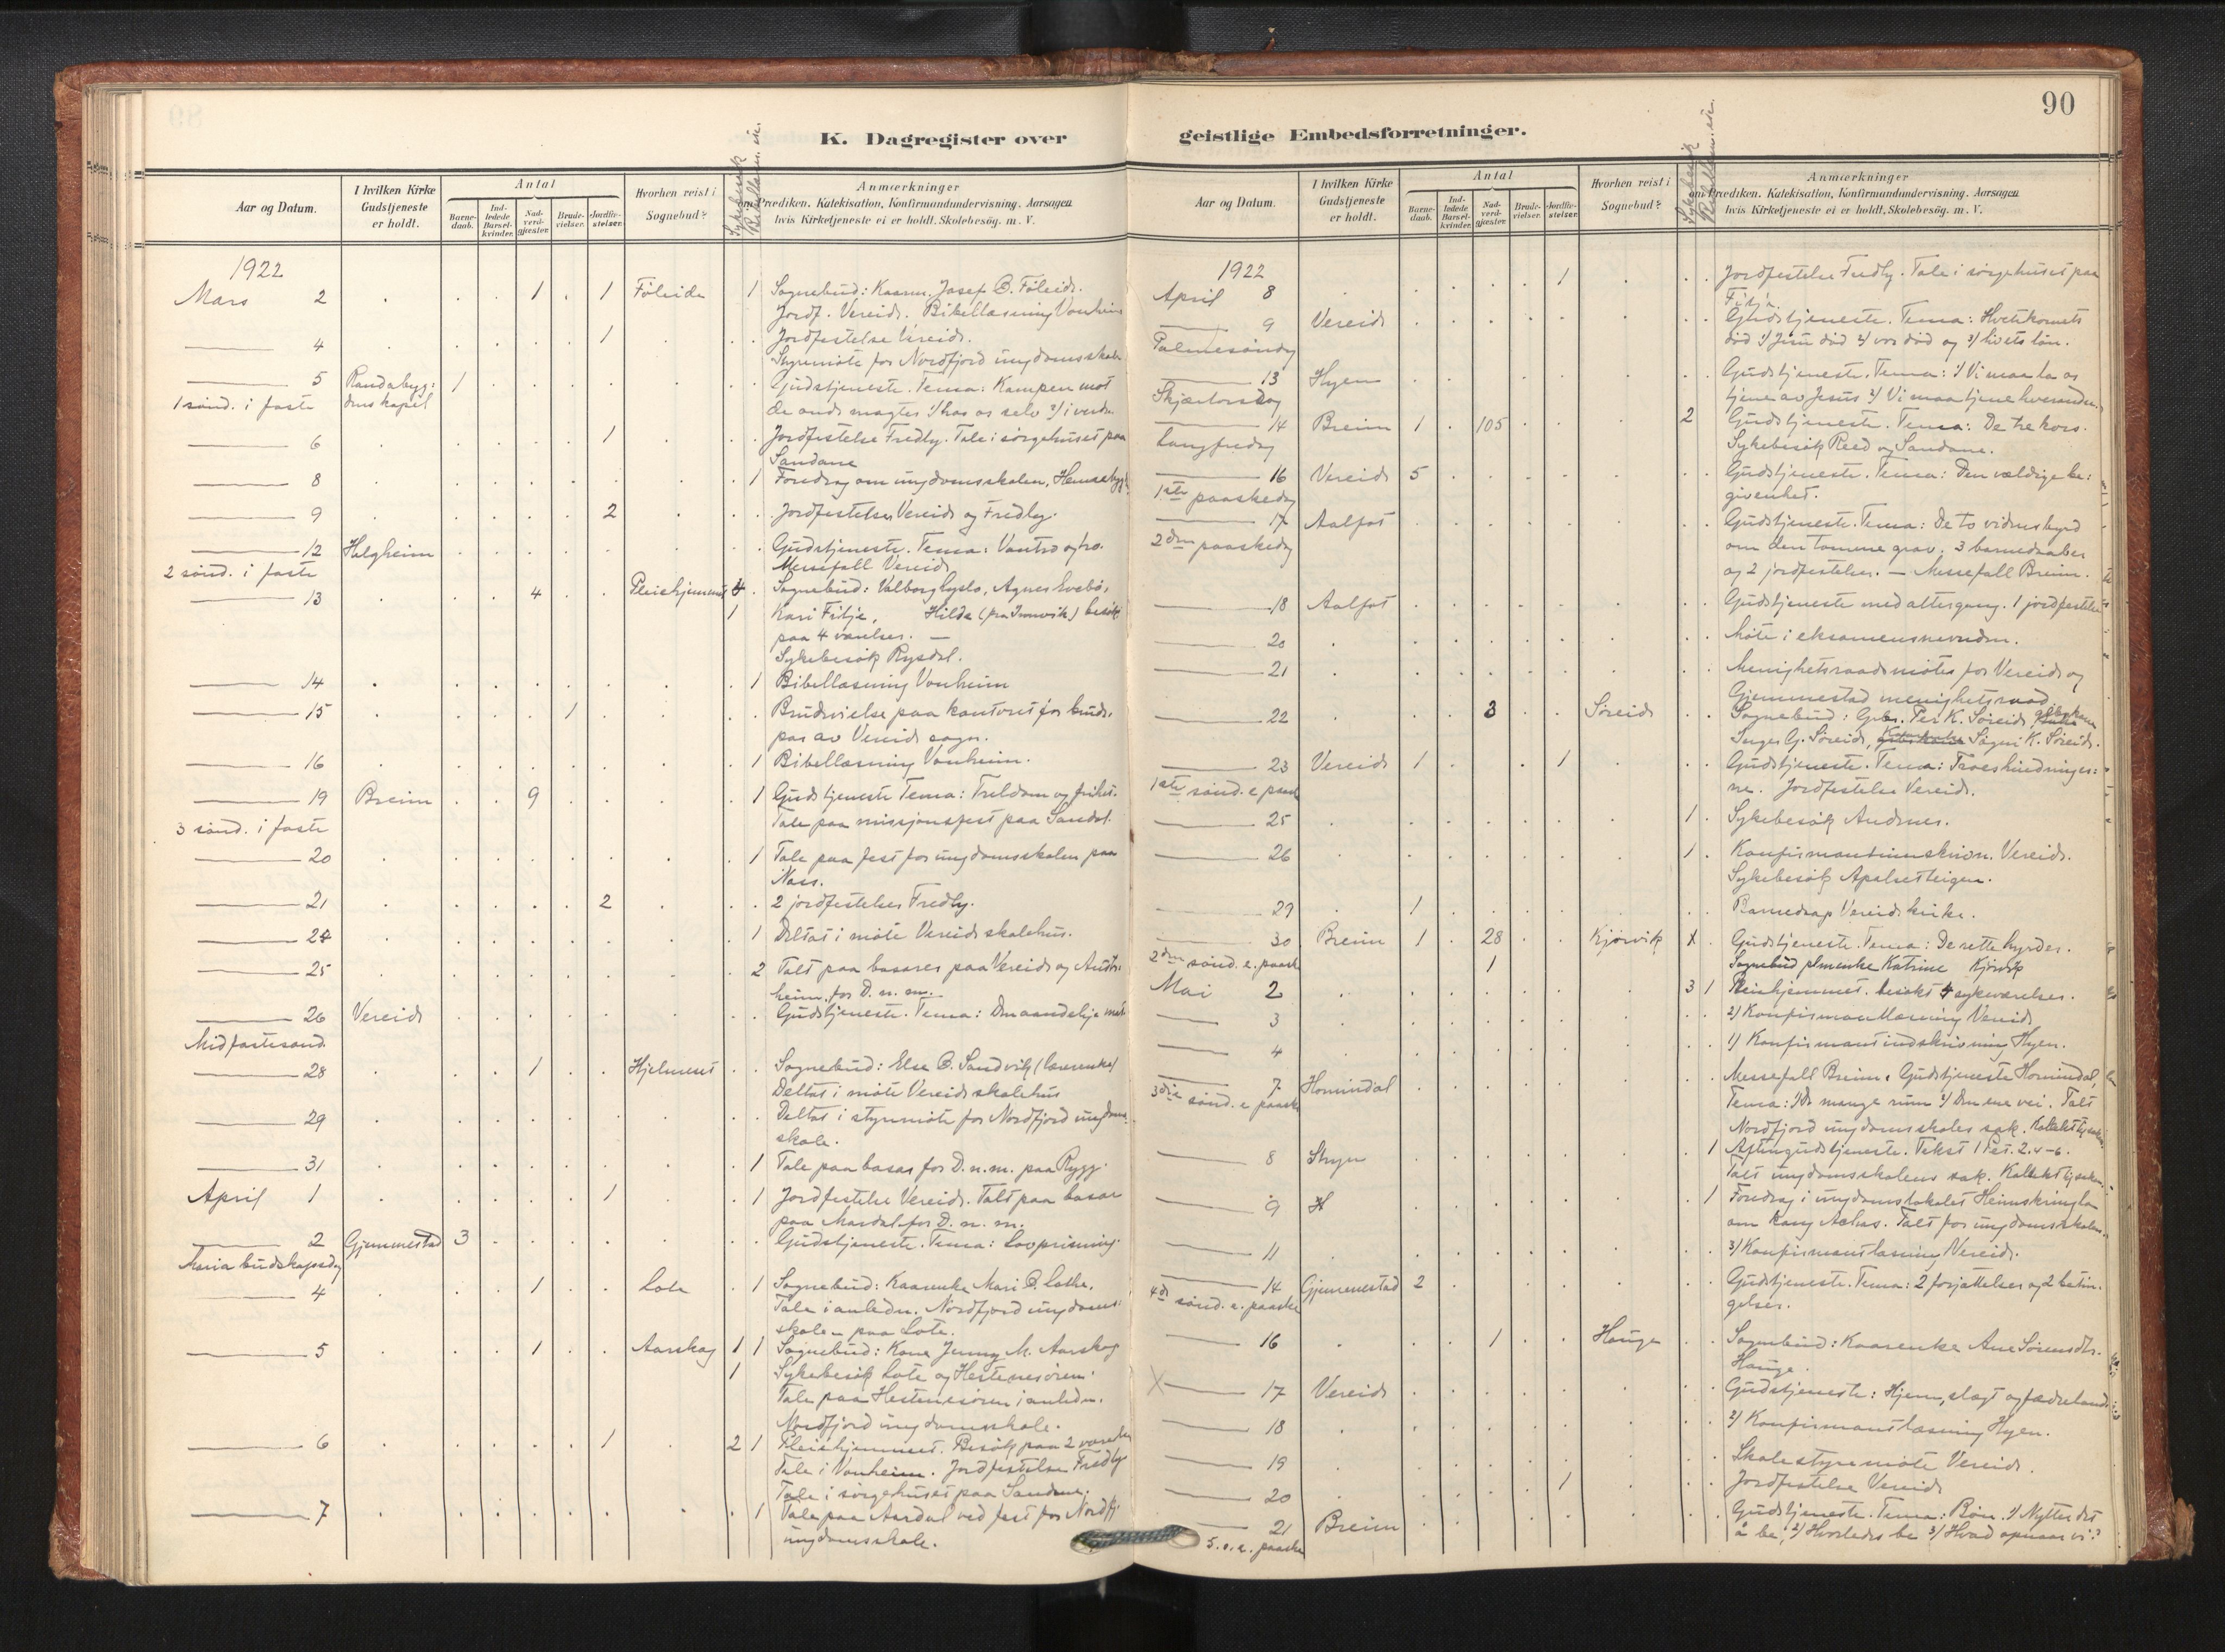 90
K. Dagregister over geistlige Embedsforretninger.
Aar og Datum.
I hvilken Kirke Gudstjeneste er holdt.
Antal
Barne-daab.
Ind-ledede Barsel-kvinder.
Nad-verd-gjæster.
Brude-vielser.
Jordfæ-stelser.
Hvorhen reist i Sognebud?
Sykebesök
Anmærkninger
om Prædiken. Katekisation, Konfirmandundervisning. Aarsagen
hvis Kirketjeneste ei er holdt. Skolebesög. m. V.
1922
Mars 2 . . . 1 . 1 Föleide 1 Sognebud: Kaarm. Josef O. Föleide.
Jordf. Vereide. Bibellæsning Vonheim
4 1 . . Jordfestelse Vereide.
Styremöte for Nordfjord ungdomsskole
5 Randabyg: 1 . . . . . . Gudstjeneste. Tema: Kampen mot
1 sönd. i faste dens kapel de onde magter 1/ hos os selv 2/ i verden
6 . . . . . 1 . . Jordfestelse Fredly. Tale i sörgehuset paa
Sandane
8 1 Foredrag om ungdomsskolen, Hennebygda
9 2 . . Jordfestelser Vereide og Fredly.
12 Helgheim Gudstjeneste. Tema: Vantro og tro.
2 sönd. i faste Messefall Vereide
13 4 Pleiehjemmet 4 . Sognebud: Valborg Agnes Evebö,
1 Kari Fitje, Hilde besök
paa 4 værelser. —
Sykebesök Rygdal.
14 . 1 Bibellæsning Vonheim
15 1 . . Brudevielse paa kontoret for brude-
par av Vereide sogn.
16 . 1 Bibellæsning Vonheim.
19 Breim 9 1 Gudstjeneste Tema: Treldom og frihet.
3 sönd. i faste Tale paa missjonsfest paa Sandal.
20 . 1 Tale paa fest for ungdomsskolen paa
Nass.
21 2 . . 2 jordfestelser Fredly.
24 . 1 Deltat i möte Vereide skolehus.
25 . 2 Talt paa basarer paa Vereide og Austr:
heim for D. n. m.
26 Vereide . . Gudstjeneste. Tema: Den aandelige
Midfastesönd.
28 1 Hjelmeset . . Sognebud: Else O. Sandvik (lærerenke)
Deltat i möte Vereide skolehus
29 . . Deltat i styremöte for Nordfjord ungdoms-
skole.
31 . 1 Tale paa basar for D. n. m. paa Rygg.
April 1 1 . 1 Jordfestelse Vereide. Talt paa basar
paa Mardal for D. n. m.
2 Gjemmestad 3 Gudstjeneste. Tema: Lovprisning.
Maria budskapsdag
4 1 Lote . 1 Sognebud: Kaarenke Mari O. Lothe.
Tale i anledn. Nordfjord ungdoms:
skole paa Lote.
5 1 Aarskog 1 1 Sognebud: Kone Jenny M. Aarskog
1 Sykebesök Lote og Hestenesören.
Tale paa Hestenesören i anledn.
Nordfjord ungdomsskole.
6 1 . 2 1 Pleiehjemmet. Besök paa 2 værelser
Tale i Vonheim. Jordfestelse Fredly
Tale i sörgehuset paa Sandane.
7 . 1 Tale paa Aardal ved fest for Nordfj.
ungdomsskole.
Aar og Datum.
I hvilken Kirke Gudstjeneste er holdt.
Antal
Barne-daab.
Ind-ledede Barsel-kvinder.
Nad-verd-gjæster.
Brude-vielser.
Jordfæ-stelser.
Hvorhen reist i Sognebud?
Sykebesök
Anmærkninger
om Prædiken. Katekisation, Konfirmandundervisning. Aarsagen
hvis Kirketjeneste ei er holdt. Skolebesög. m. V.
1922
April 8 1 . . Jordfestelse Fredly. Tale i sörgehuset paa
Fitje.
9 Vereide . . Gudstjeneste. Tema: Hvetekornets
Palmesöndag död 1/ Jesu död 2/ vor död og 3/ livets lön.
13 Hyen . . Gudstjeneste. Tema: 1/ Vi maa la os
Skjærtorsdag tjene av Jesus 2/ Vi maa tjene hverandre.
14 Breim 1 . 105 2 Gudstjeneste. Tema: De tre kors.
Langfredag Sykebesök Reed og Sandane.
16 Vereide 5 . . Gudstjeneste. Tema: Den vældige be:
1ste paaskedag givenhet.
17 Aalfot . . Gudstjeneste. Tema: De to vidnesbyrd
2den paaskedag om den tomme grav. 3 barnedaaber
og 2 jordfestelser. — Messefall Breim.
18 Aalfot . . Gudstjeneste med altergang. 1 jordfestelse
20 . . Möte i eksamensnevnden.
21 . . Menighetsraadsmöter for Vereide og
Gjemmestad menighetsraad.
22 3 Söreide . . Sognebud: Per K. Söreide
G. Söreide, Sögni K. Söreide.
23 Vereide 1 1 . . Gudstjeneste. Tema: Troeshindringer:
1ste sönd. e paaske ne. Jordfestelse Vereide.
25 1 . Sykebesök Andenes.
26 1 . Konfirmantinnskrivn. Vereide.
Sykebesök Apalsetteigen.
29 1 . . Barnedaap Vereide kirke.
30 Breim 1 28 Kjörvik 1 . Gudstjeneste. Tema: De rette hyrder.
2den sönd. e. paaske 1 Sognebud Katrine Kjörvik
Mai 2 3 1 Pleiehjemmet. besökt 4 sykeværelser.
3 2) Konfirmantlæsning Vereide
4 1) Konfirmantindskrivning Hyen.
7 Hornindal . . Messefall Breim. Gudstjeneste Hornindal,
3die sönd. e paaske Tema: 1/ De mange rum 2/ Den ene vei. Talt
Nordfjord ungdomsskoles sak.
8 Stryn . 1 Aftengudstjeneste. Tekst 1 Pet. 2. 4-6.
Talt ungdomsskolens sak.
9 . 1 Foredrag i ungdomslokalet Heimskringla
om kong Achas. Talt for ungdomsskolen.
11 . . 3) Konfirmantlæsning Vereide.
14 Gjemmestad 2 . . Gudstjeneste. Tema: 2 forjættelser og 2 betin-
4de sönd. e. paaske gelser.
16 1 Hauge . . Sognebud: Kaarenke Ane Sörensdtr.
Hauge.
X 17 Vereide . . Gudstjeneste: Hjem, slegt og fædreland
18 . . 2) Konfirmantlæsning Hyen.
19 . . Skolestyremöte Vereide.
20 1 . . Jordfestelse Vereide
21 Breim . . Gudstjeneste. Tema: Bön. 1) Nytter det
5. s. e. paaske å be, 2) Hvorledes be 3) Hvad opnaar vi?